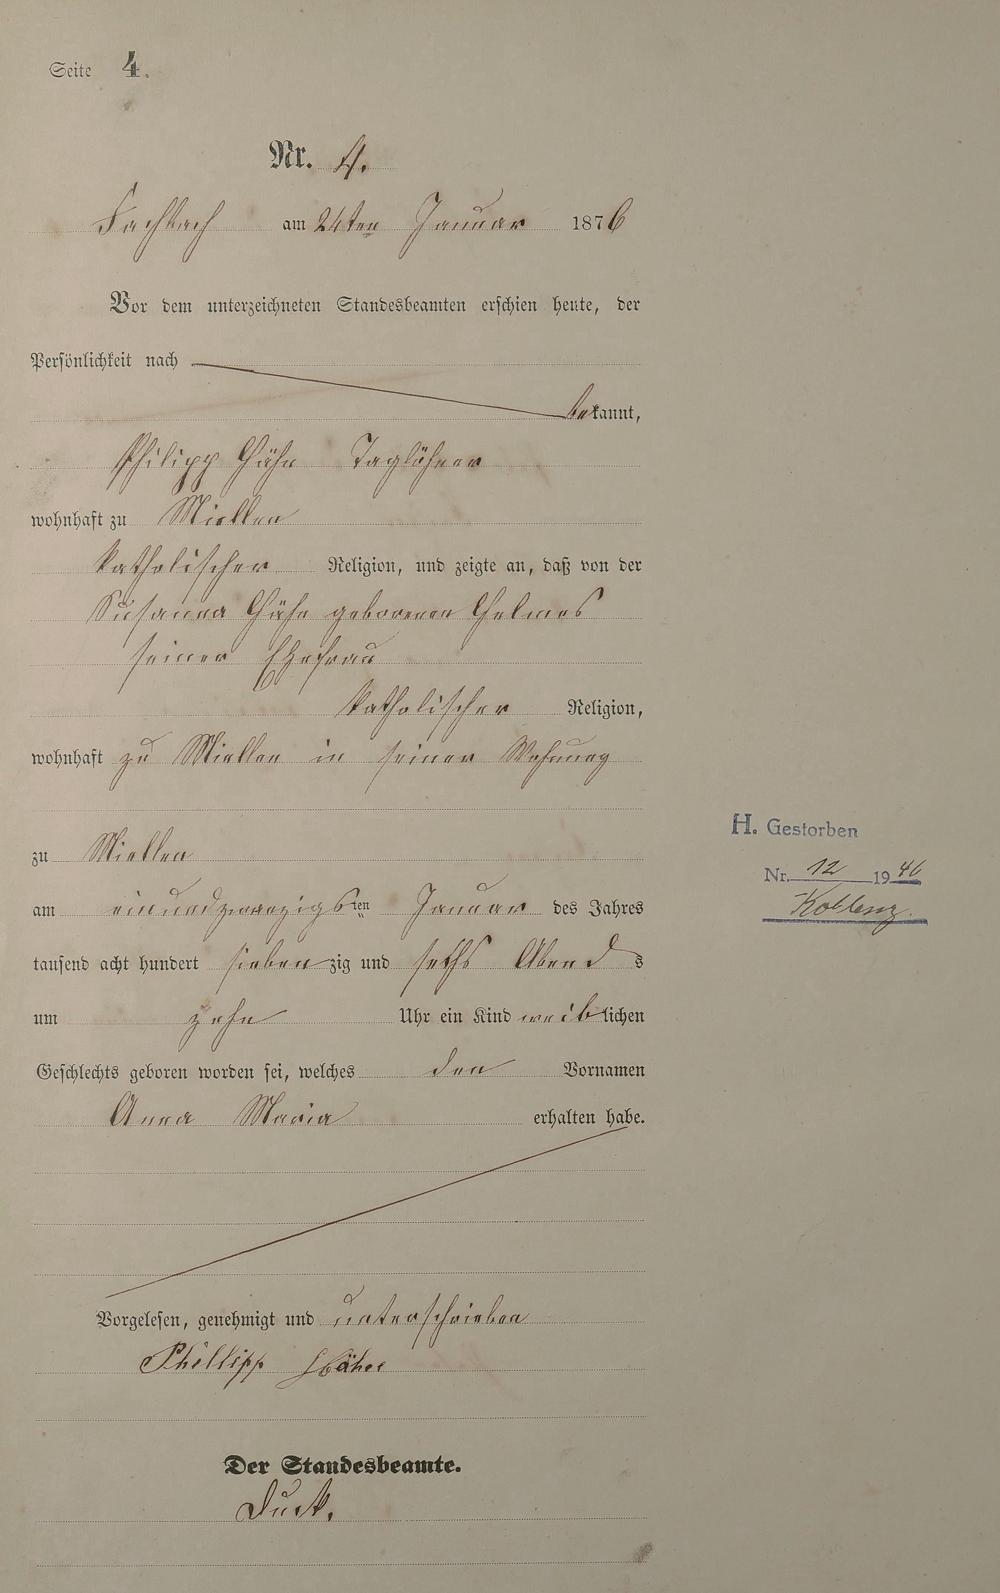 Seite 4.
Nr. 4.
Fachbach am 24ten Januar 1876
Vor dem unterzeichneten Standesbeamten erschien heute, der
Persönlichkeit nach
bekannt,
Philipp Hähn Taglöhner
wohnhaft zu Miellen
katholischer Religion, und zeigte an, daß von der
Susanna Hähn geborenen Gelmes
seiner Ehefrau
katholischer Religion,
wohnhaft zu Miellen in seiner Wohnung
zu Miellen
am einundzwanzigsten Januar des Jahres
tausend acht hundert siebenzig und sechs Abends
um zehn Uhr ein Kind weiblichen
Geschlechts geboren worden sei, welches den Vornamen
Anna Maria erhalten habe.
Vorgelesen, genehmigt und unterschrieben
Phillipp
Der Standesbeamte.
Duck.
H. Gestorben
Nr. 12 1946
Koblenz.